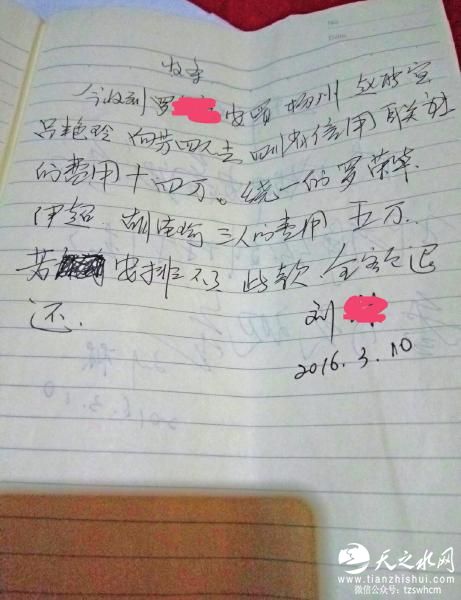 收条
今收到罗 安置 杨州 赵
吕艳玲 向芳四人去 四川农信用联社
的费用十四万。统一的罗荣
伊超 胡 三人的费用 五万.
若 安排不了 此款 全部退
还.
刘
2016.3.10
天之水网
www.tianzhishui.com
微信公众号: tzswhcm